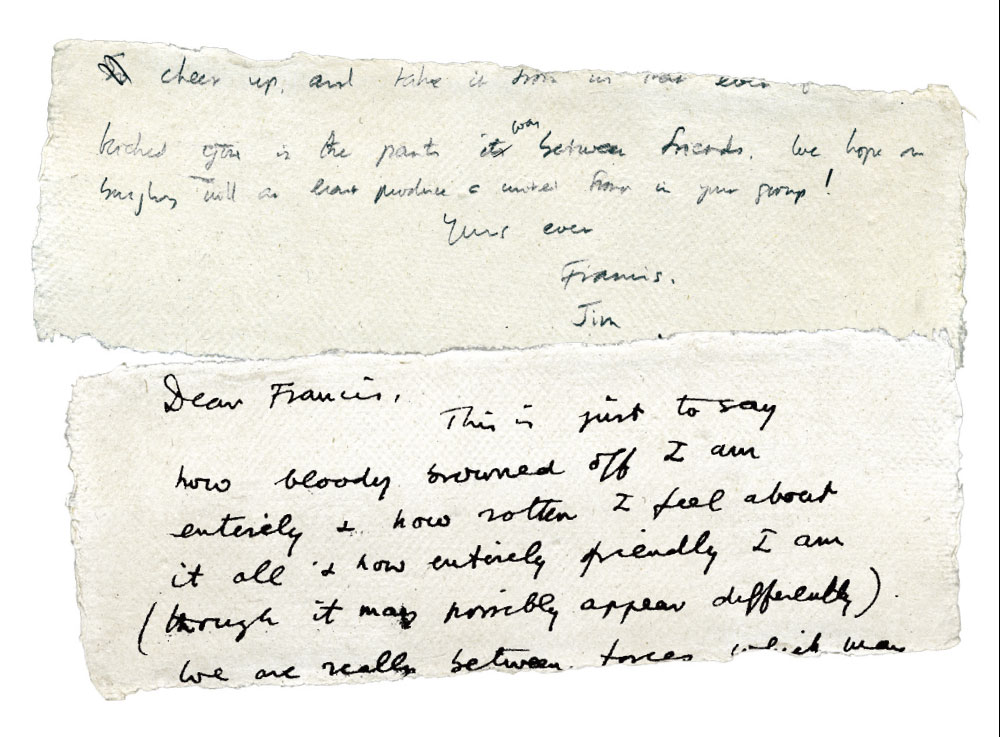 cheer up, and take it from us even
kicked you in the pants it was between friends. We hope our
burglary will at least produce a united front in your group!
Yours ever
Francis.
Jim
Dear Francis,
This is just to say
how bloody browned off I am
entirely & how rotten I feel about
it all & how entirely friendly I am
(though it may possibly appear differently).
We are really between forces which may